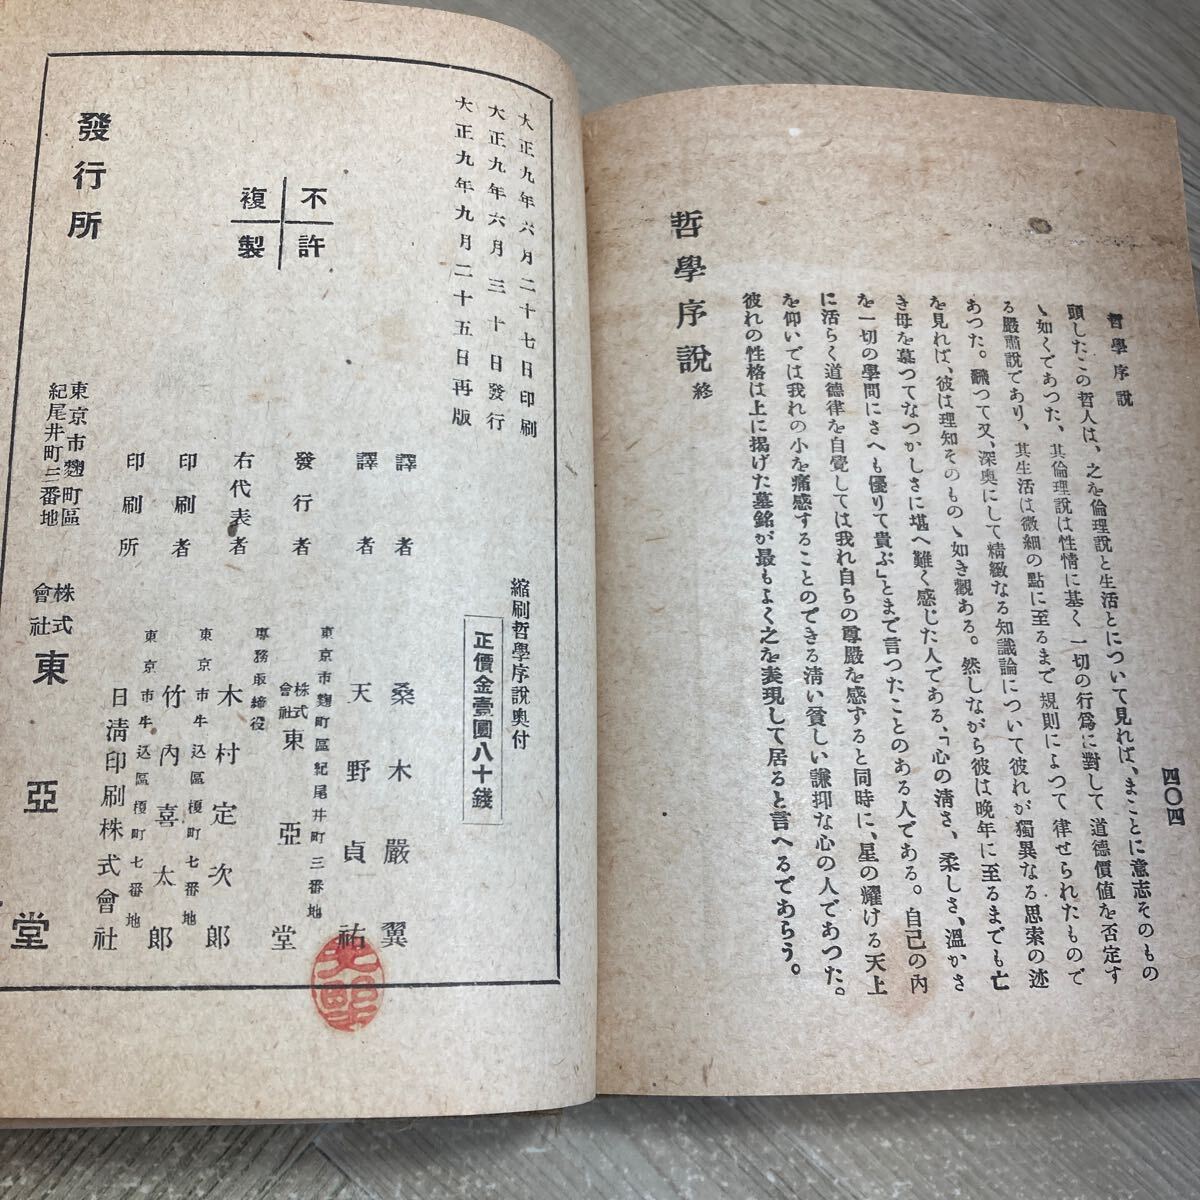 四〇四
哲學序說
頭したこの哲人は、之を倫理說と生活とについて見れば、まことに意志そのもの
ゝ如くであつた、其倫理說は性情に基く一切の行爲に對して道德價値を否定す
る嚴肅說であり、其生活は微細の點に至るまで規則によつて律せられたもので
あつた。飜つて又、深奥にして精緻なる知識論について彼れが獨異なる思索の述
を見れば、彼は理知そのものゝ如き觀ある。然しながら彼は晩年に至るまでも亡
き母を慕つてなつかしさに堪へ難く感じた人である、「心の淸さ、柔しさ、溫かさ
を一切の學問にさへも優りて貴ぶ」とまで言つたことのある人である。自己の內
に活らく道德律を自覺しては我れ自らの尊嚴を感ずると同時に、星の耀ける天上
を仰いでは我れの小を痛感することのできる淸い貧しい謙抑な心の人であつた。
彼れの性格は上に揭げた墓銘が最もよく之を表現して居ると言へるであらう。
哲學序說 終
大正九年六月二十七日印刷
大正九年六月三十日發行
大正九年九月二十五日再版
縮刷哲學序說奧付
正價金壹圓八十錢
不許
複製
譯者 桑木嚴翼
譯者 天野貞祐
東京市麴町區紀尾井町三番地
發行者 株式會社 東亞堂
專務取締役
右代表者 木村定次郎
東京市牛込區榎町七番地
印刷者 竹內喜太郎
東京市牛込區榎町七番地
印刷所 日淸印刷株式會社
發行所
東京市麴町區
紀尾井町三番地
株式會社 東亞堂